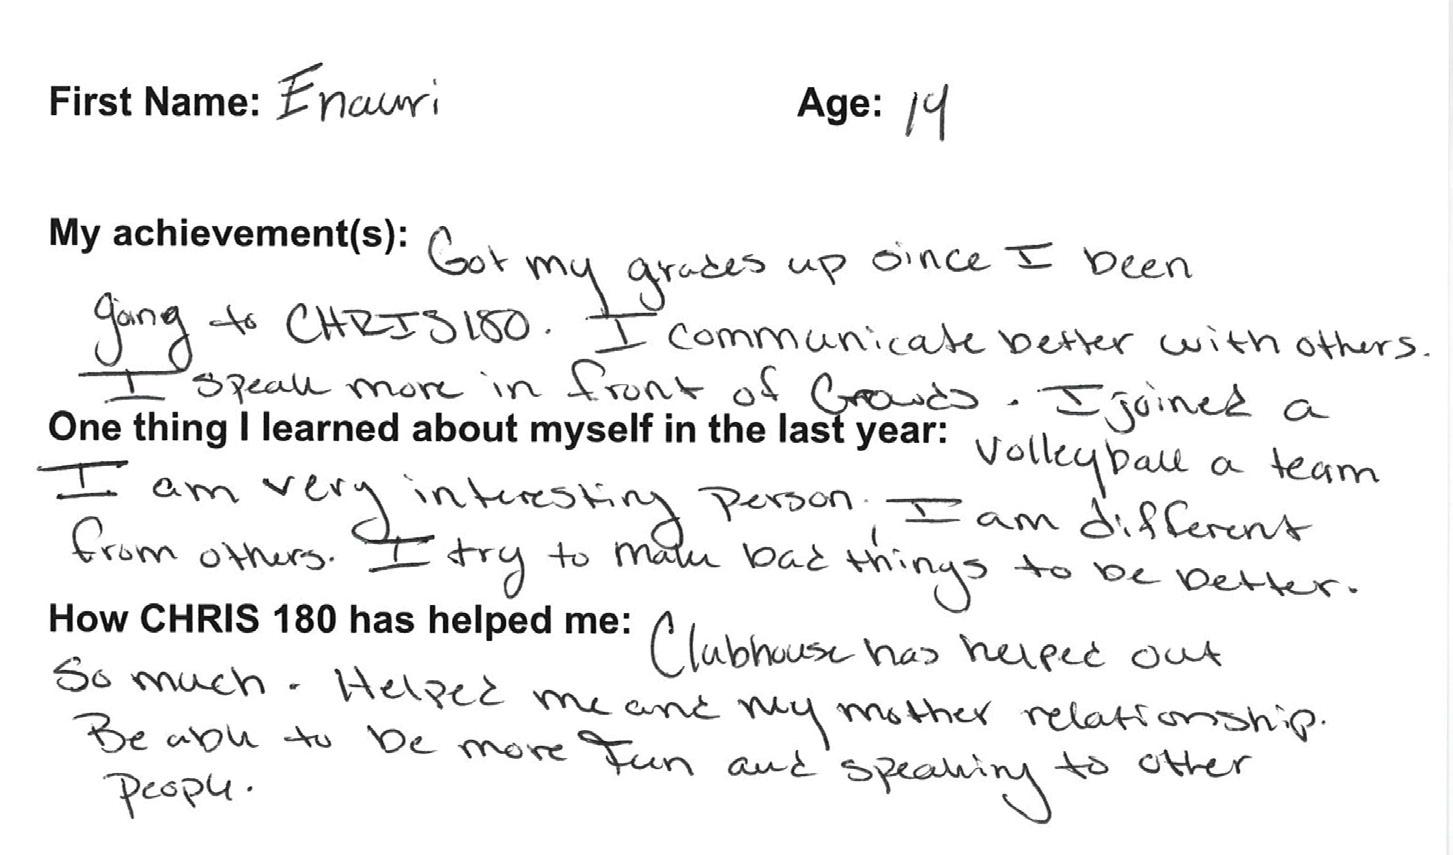 First Name: Enauri Age: 14
My achievement(s): Got my grades up since I been
going to CHRIS180. I communicate better with others.
I speak more in front of Crowds. I joined a
One thing I learned about myself in the last year: volleyball a team
I am very interesting person. I am different
from others. I try to make bad things to be better.
How CHRIS 180 has helped me: Clubhouse has helped out
So much. Helped me and my mother relationship.
Be able to be more fun and speaking to other
people.